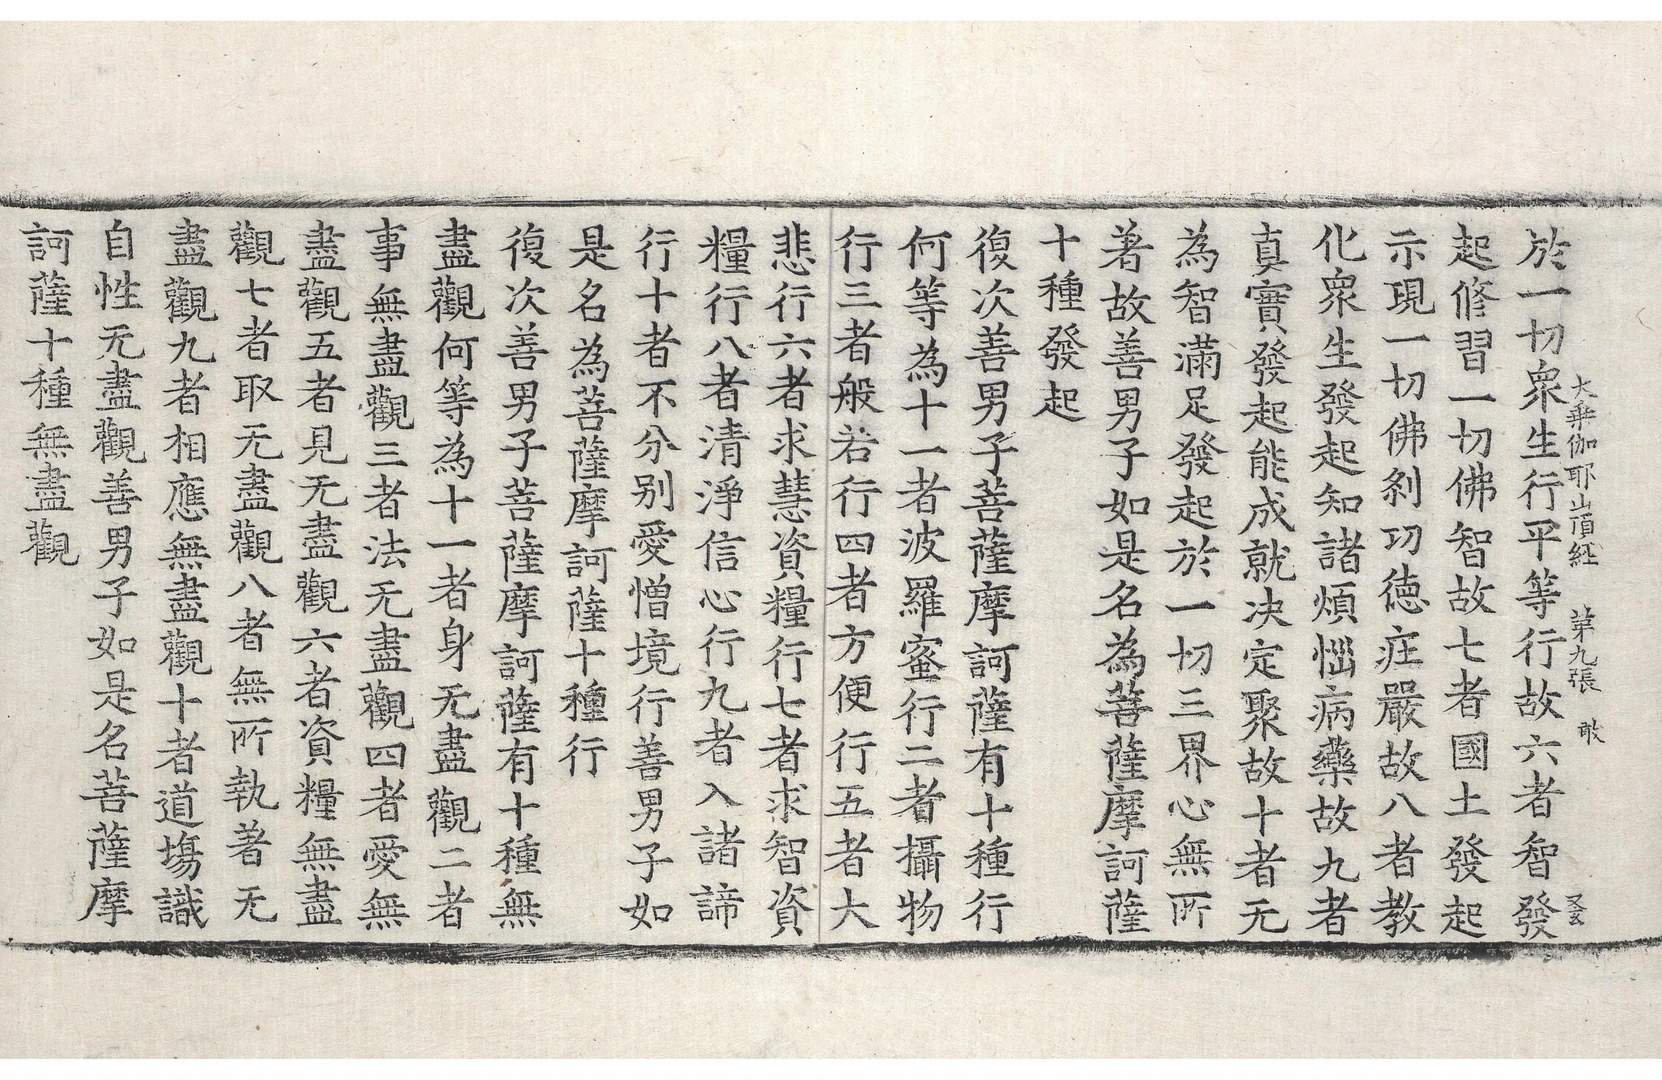 大乗伽耶山頂経　第九張　敢　叉玄
於一切衆生行平等行故六者智發
起修習一切佛智故七者國土發起
示現一切佛刹功徳莊嚴故八者教
化衆生發起知諸煩惱病藥故九者
真實發起能成就决定聚故十者无
為智滿足發起於一切三界心無所
著故善男子如是名為菩薩摩訶薩
十種發起
復次善男子菩薩摩訶薩有十種行
何等為十一者波羅蜜行二者攝物
行三者般若行四者方便行五者大
悲行六者求慧資糧行七者求智資
糧行八者清淨信心行九者入諸諦
行十者不分别愛憎境行善男子如
是名為菩薩摩訶薩十種行
復次善男子菩薩摩訶薩有十種無
盡觀何等為十一者身无盡觀二者
事無盡觀三者法无盡觀四者愛無
盡觀五者見无盡觀六者資糧無盡
觀七者取无盡觀八者無所執著无
盡觀九者相應無盡觀十者道場識
自性无盡觀善男子如是名菩薩摩
訶薩十種無盡觀